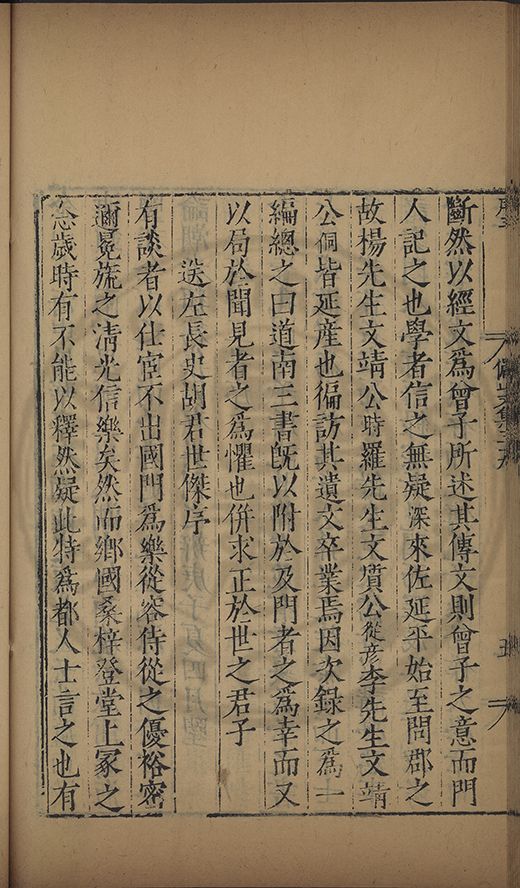 斷然以經文爲曾子所述其傳文則曾子之意而門
人記之也學者信之無疑深來佐延平始至問郡之
故楊先生文靖公時羅先生文質公從彦李先生文靖
公侗皆延産也徧訪其遺文卒業焉因次錄之爲一
編總之曰道南三書旣以附於及門者之爲幸而又
以局於聞見者之爲懼也併求正於世之君子
送左長史胡君世傑序
有談者以仕宦不出國門爲樂從容侍從之優裕密
邇冕旒之清光信樂矣然而鄉國桑梓登堂上冢之
念歲時有不能以釋然疑此特爲都人士言之也有